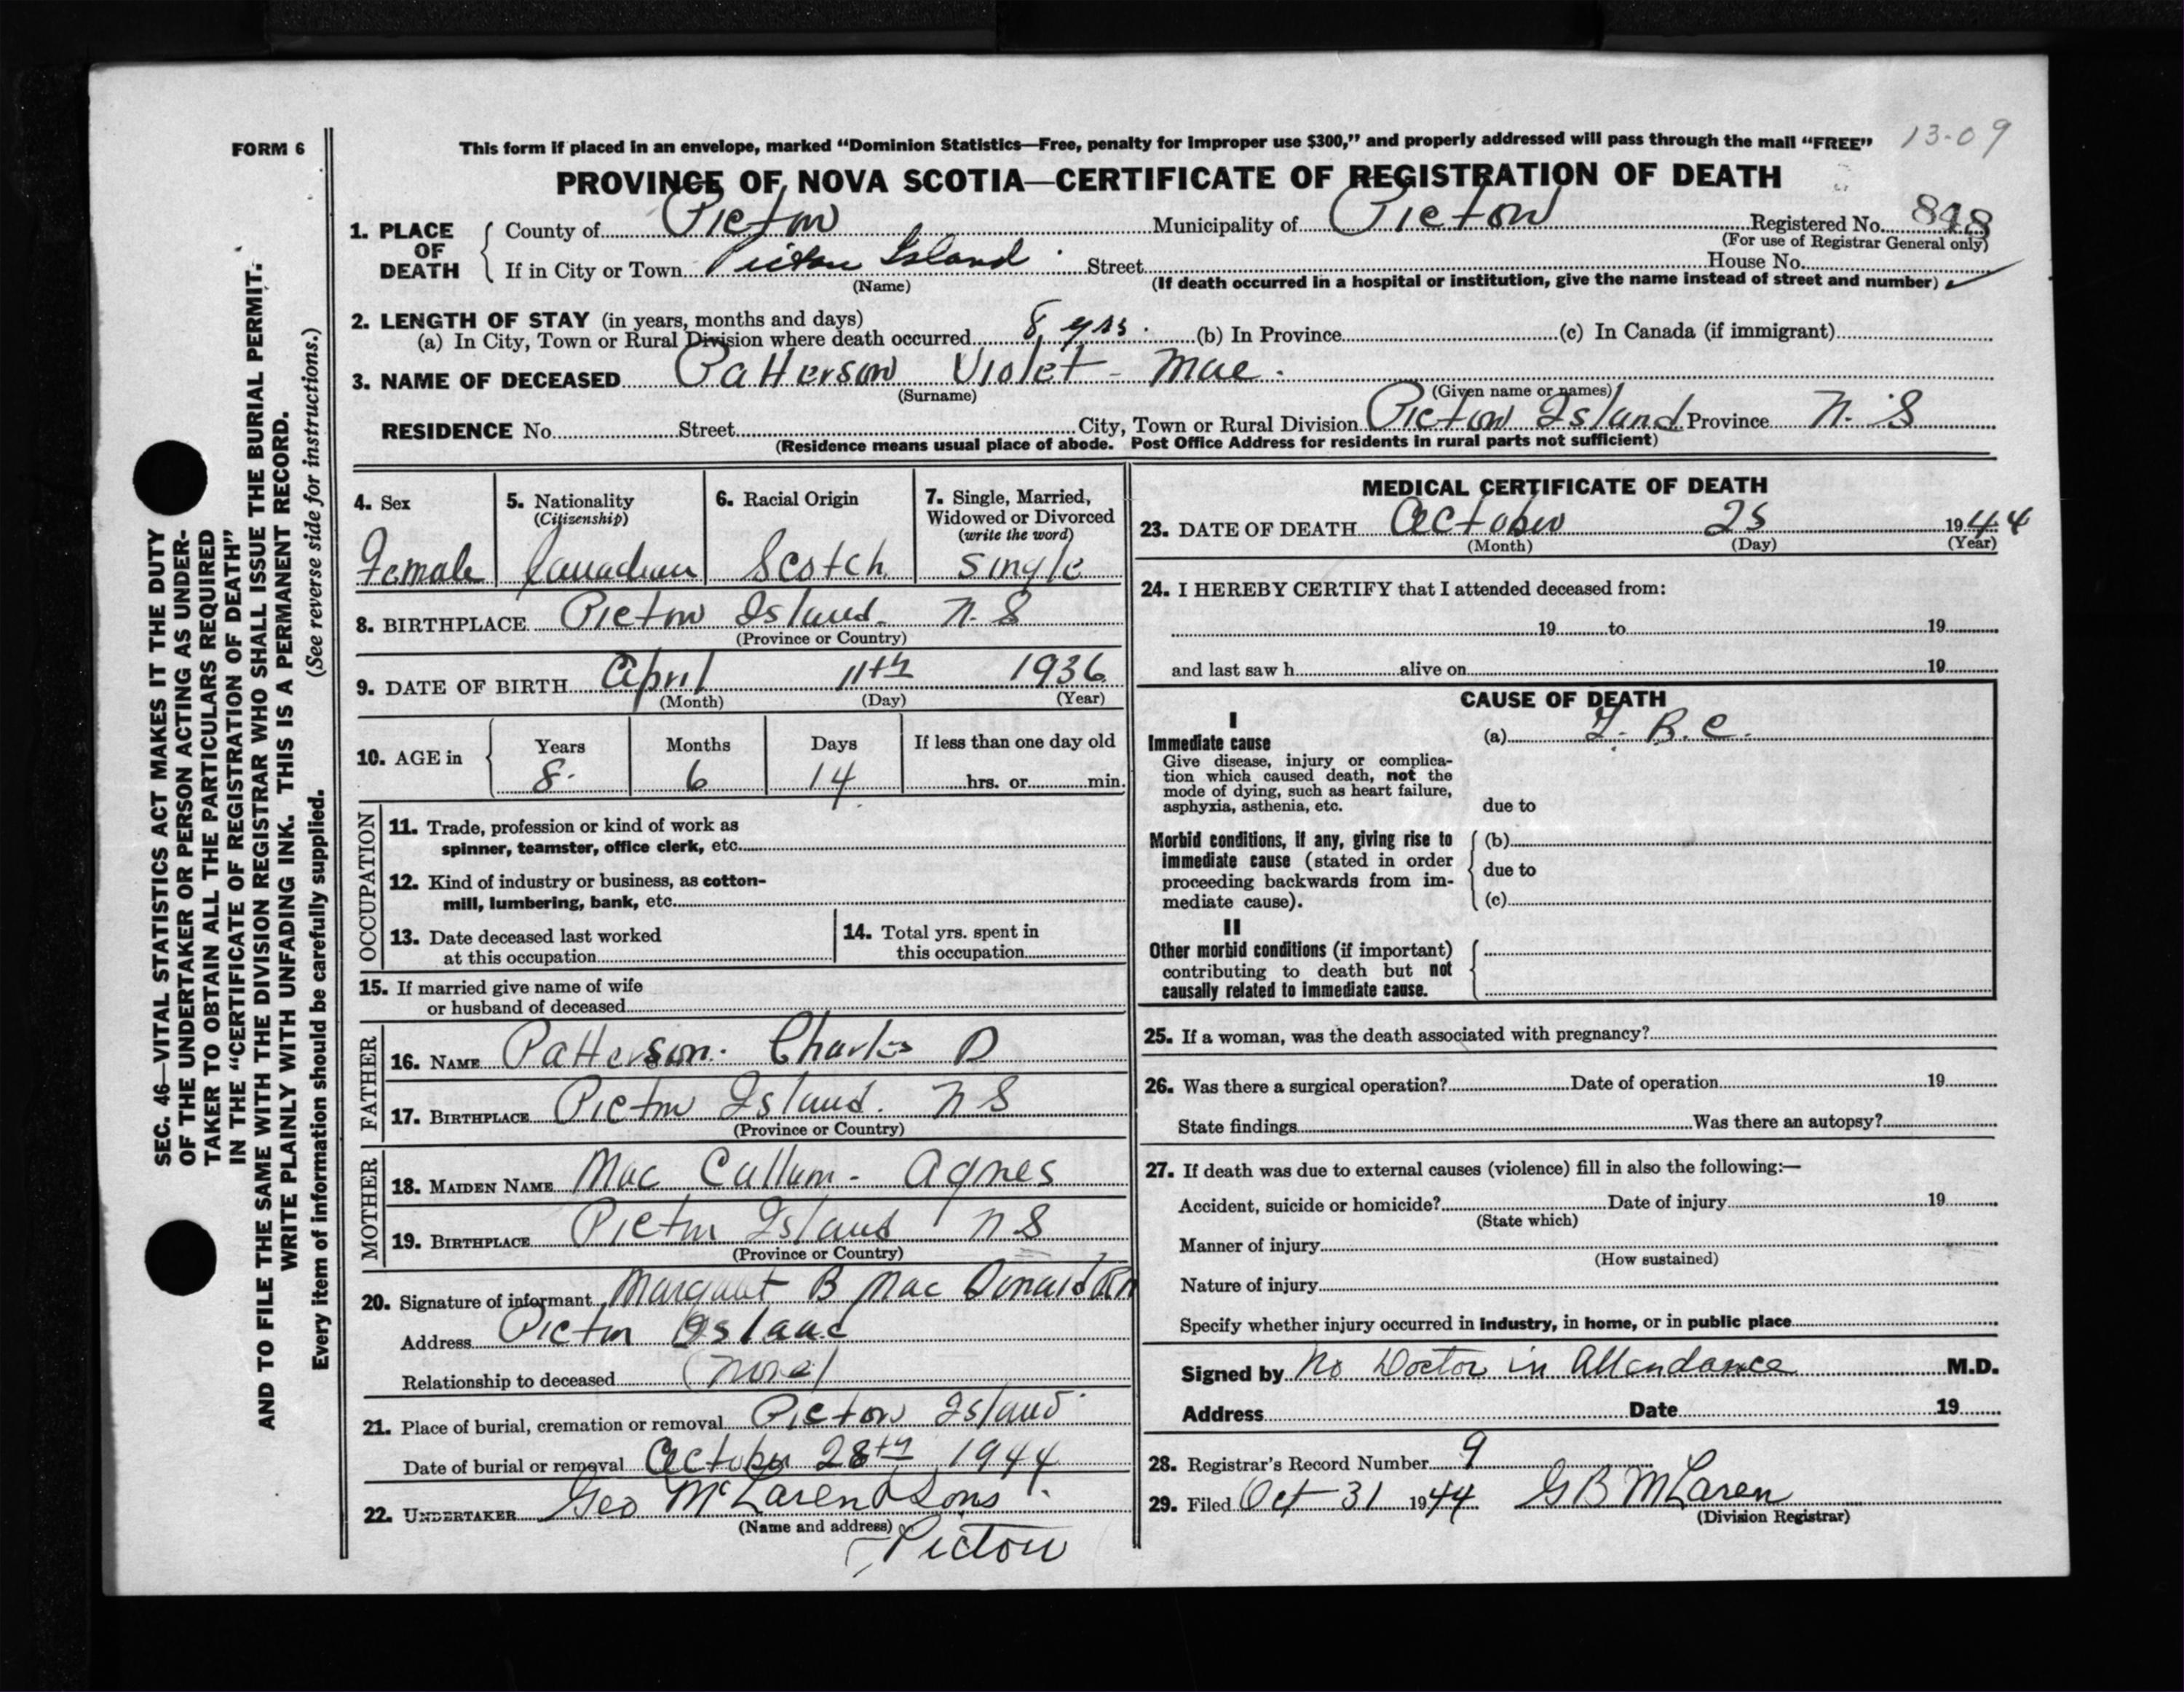 13-09
FORM 6
This form if placed in an envelope, marked "Dominion Statistics—Free, penalty for improper use $300," and properly addressed will pass through the mail "FREE"
PROVINCE OF NOVA SCOTIA—CERTIFICATE OF REGISTRATION OF DEATH
1. PLACE OF DEATH County of Pictou Municipality of Pictou Registered No. 848
(For use of Registrar General only)
If in City or Town Pictou Island Street House No.
(Name) (If death occurred in a hospital or institution, give the name instead of street and number)
2. LENGTH OF STAY (in years, months and days)
(a) In City, Town or Rural Division where death occurred 8 yrs. (b) In Province (c) In Canada (if immigrant)
3. NAME OF DECEASED Patterson Violet - Mae.
(Surname) (Given name or names)
RESIDENCE No. Street City, Town or Rural Division Pictou Island Province N. S
(Residence means usual place of abode. Post Office Address for residents in rural parts not sufficient)
4. Sex
Female
5. Nationality
(Citizenship)
Canadian
6. Racial Origin
Scotch
7. Single, Married,
Widowed or Divorced
(write the word)
Single
8. BIRTHPLACE Pictou Island. N. S
(Province or Country)
9. DATE OF BIRTH April 11th 1936
(Month) (Day) (Year)
10. AGE in Years Months Days If less than one day old
8 6 14 hrs. or min.
OCCUPATION
11. Trade, profession or kind of work as
spinner, teamster, office clerk, etc.
12. Kind of industry or business, as cotton-
mill, lumbering, bank, etc.
13. Date deceased last worked
at this occupation
14. Total yrs. spent in
this occupation
15. If married give name of wife
or husband of deceased
FATHER
16. NAME Patterson. Charles D
17. BIRTHPLACE Pictou Island. N S
(Province or Country)
MOTHER
18. MAIDEN NAME Mac Callum - Agnes
19. BIRTHPLACE Pictou Island N S
(Province or Country)
20. Signature of informant Margaret B Mac Donald RN
Address Pictou Island
Relationship to deceased (None)
21. Place of burial, cremation or removal Pictou Island
Date of burial or removal October 28th 1944
22. UNDERTAKER Geo McLaren & Sons
(Name and address)
Pictou
MEDICAL CERTIFICATE OF DEATH
23. DATE OF DEATH October 25 1944
(Month) (Day) (Year)
24. I HEREBY CERTIFY that I attended deceased from:
19 to 19
and last saw h alive on 19
CAUSE OF DEATH
I
Immediate cause
Give disease, injury or complica-
tion which caused death, not the
mode of dying, such as heart failure,
asphyxia, asthenia, etc.
(a) T. B. C.
due to
Morbid conditions, if any, giving rise to
immediate cause (stated in order
proceeding backwards from im-
mediate cause).
(b)
due to
(c)
II
Other morbid conditions (if important)
contributing to death but not
causally related to immediate cause.
25. If a woman, was the death associated with pregnancy?
26. Was there a surgical operation? Date of operation 19
State findings Was there an autopsy?
27. If death was due to external causes (violence) fill in also the following:—
Accident, suicide or homicide? Date of injury 19
(State which)
Manner of injury
(How sustained)
Nature of injury
Specify whether injury occurred in industry, in home, or in public place
Signed by No Doctor in Attendance M.D.
Address Date 19
28. Registrar's Record Number 9
29. Filed Oct 31 1944 G B McLaren
(Division Registrar)
SEC. 46—VITAL STATISTICS ACT MAKES IT THE DUTY
OF THE UNDERTAKER OR PERSON ACTING AS UNDER-
TAKER TO OBTAIN ALL THE PARTICULARS REQUIRED
IN THE "CERTIFICATE OF REGISTRATION OF DEATH"
AND TO FILE THE SAME WITH THE DIVISION REGISTRAR WHO SHALL ISSUE THE BURIAL PERMIT.
WRITE PLAINLY WITH UNFADING INK. THIS IS A PERMANENT RECORD.
Every item of information should be carefully supplied. (See reverse side for instructions.)